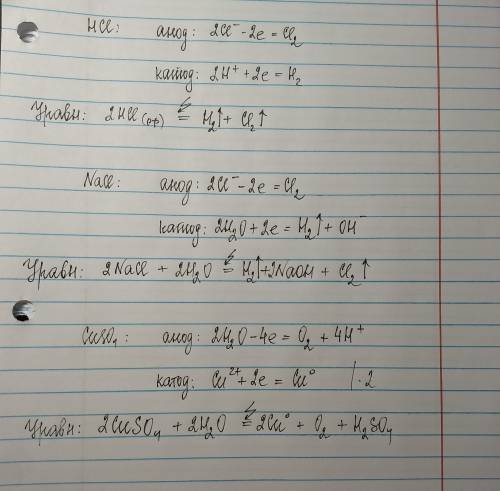 HCl: анод: 2Cl⁻ - 2e = Cl₂
катод: 2H⁺ + 2e = H₂
Уравн: 2HCl (р-р) = H₂↑ + Cl₂↑
NaCl: анод: 2Cl⁻ - 2e = Cl₂
катод: 2H₂O + 2e = H₂↑ + OH⁻
Уравн: 2NaCl + 2H₂O = H₂↑ + 2NaOH + Cl₂↑
CuSO₄: анод: 2H₂O - 4e = O₂ + 4H⁺
катод: Cu²⁺ + 2e = Cu⁰ |·2
Уравн: 2CuSO₄ + 2H₂O = 2Cu⁰ + O₂ + H₂SO₄